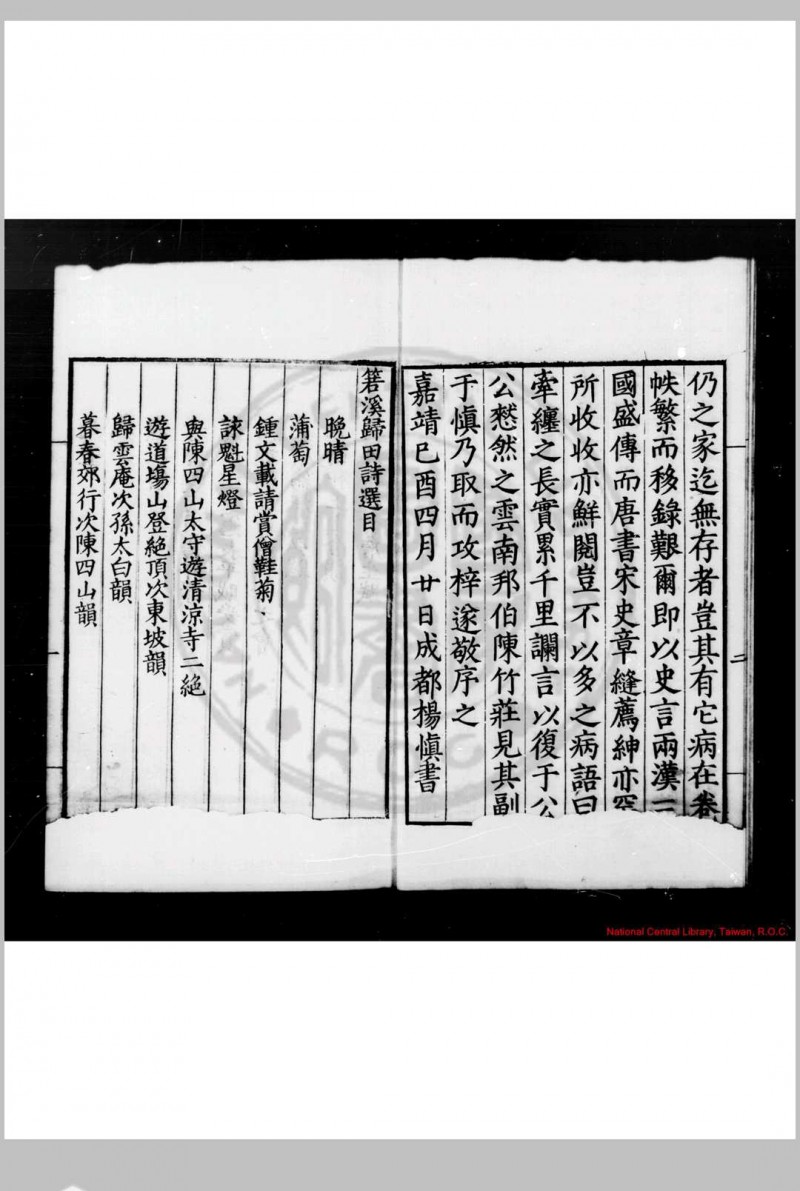 仍之家迄無存者豈其有它病在卷
帙繁而移錄艱爾即以史言兩漢三
國盛傳而唐書宋史章縫薦紳亦罕
所收收亦鮮閱豈不以多之病語曰
牽纏之長實累千里讕言以復于公
公憖然之雲南邦伯陳竹莊見其副
于愼乃取而攻梓遂敬序之
嘉靖己酉四月廿日成都楊愼書
二
箬溪歸田詩選目
晩晴
蒲萄
鍾文載請賞僧鞋菊
詠魁星燈
與陳四山太守遊清凉寺二絶
遊道塲山登絶頂次東坡韻
歸雲庵次孫太白韻
暮春郊行次陳四山韻
National Central Library, Taiwan, R.O.C.